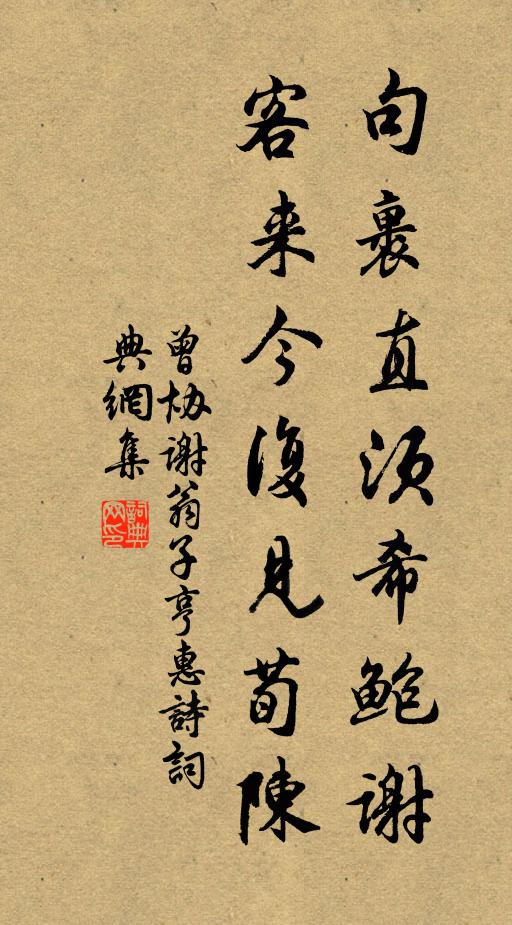 句裹直須希鮑謝
客来今復見荀陳
曾協謝翁子亨惠詩詞
典網集
詞典
网印